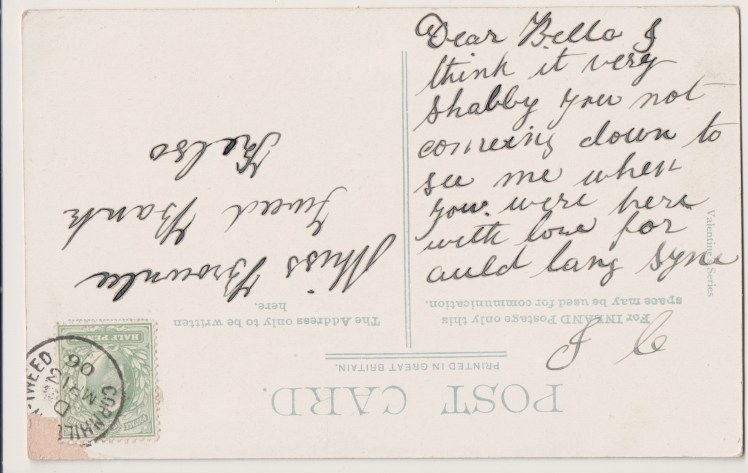 Dear Bella I
think it very
shabby you not
comeing down to
see me when
you were here
with love for
auld lang syne
J C
Miss Brownlee
Tweed Bank
Kelso
POST CARD.
PRINTED IN GREAT BRITAIN.
For INLAND Postage only this
space may be used for communication.
The Address only to be written
here.
Valentine's Series
HALF PENNY
CORNHILL
TWEED
D
MR 12
06